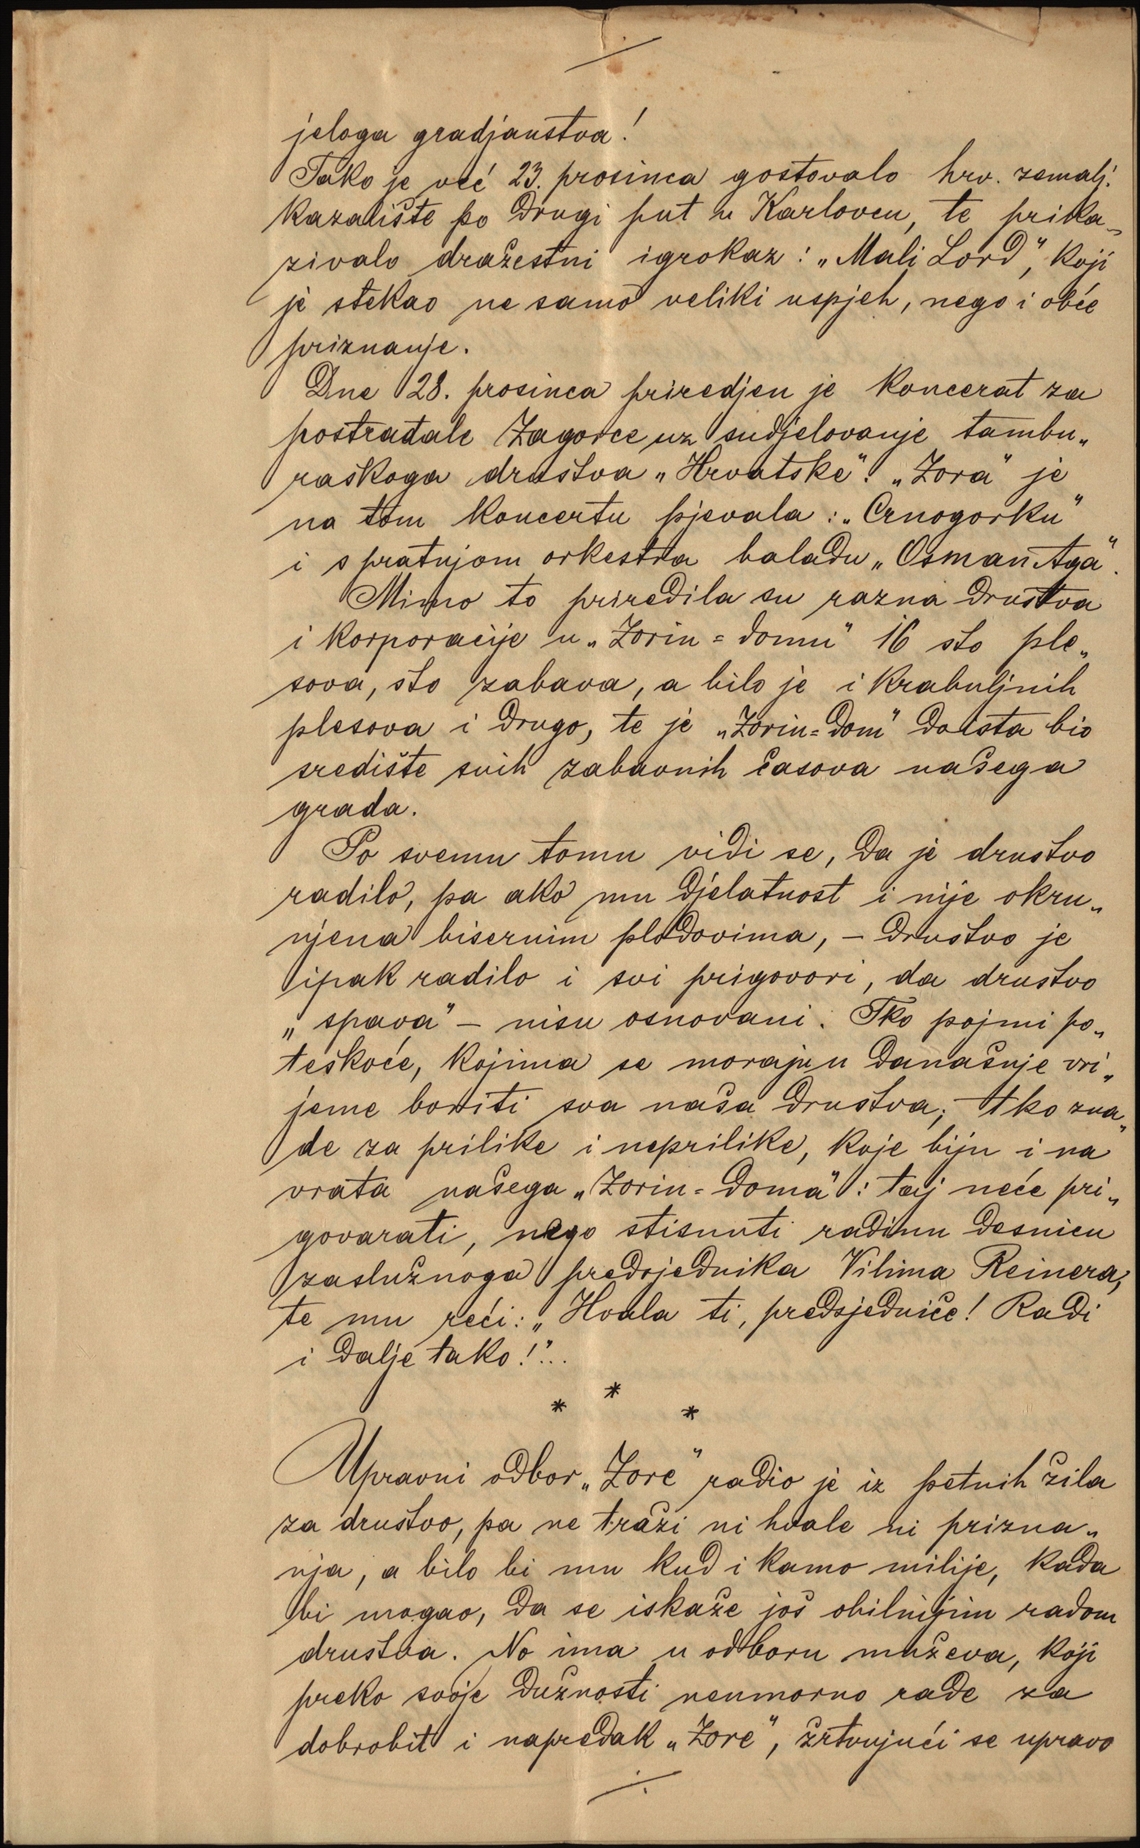 jeloga gradjanstva!
Tako je već 23. prosinca gostovalo hrv. zemalj.
kazalište po drugi put u Karlovcu, te prika„
zivalo dražestni igrokaz: „Mali Lord“, koji
je stekao ne samo veliki uspjeh, nego i obće
priznanje.
Dne 28. prosinca priredjen je koncerat za
postradale Zagorce uz sudjelovanje tambu„
raškoga društva „Hrvatske“. „Zora“ je
na tom koncertu pjevala: „Crnogorku“
i s pratnjom orkestra baladu „Osman Aga“.
Mimo to priredila su razna društva
i korporacije u „Zorin=domu“ 16 sto ple„
sova, sto zabava, a bilo je i krabuljnih
plesova i drugo, te je „Zorin=dom“ doista bio
središte svih zabavnih časova našega
grada.
Po svemu tomu vidi se, da je društvo
radilo, pa ako mu djelatnost i nije okru„
njena bisernim plodovima, – društvo je
ipak radilo i svi prigovori, da društvo
„spava“ – nisu osnovani. Tko pojmi po„
teškoće, kojima se moraju u današnje vri„
jeme boriti sva naša društva; – tko zna„
de za prilike i neprilike, koje biju i na
vrata našega „Zorin=doma“: taj neće pri„
govarati, nego stisnuti radinu desnicu
zaslužnoga predsjednika Vilima Reinera,
te mu reći: „Hvala ti, predsjedniče! Radi
i dalje tako!“...
* * *
Upravni odbor „Zore“ radio je iz petnih žila
za društvo, pa ne traži ni hvale ni prizna„
nja, a bilo bi mu kud i kamo milije, kada
bi mogao, da se iskaže još obilnijim radom
društva. No ima u odboru muževa, koji
preko svoje dužnosti neumorno rade za
dobrobit i napredak „Zore“, žrtvujući se upravo